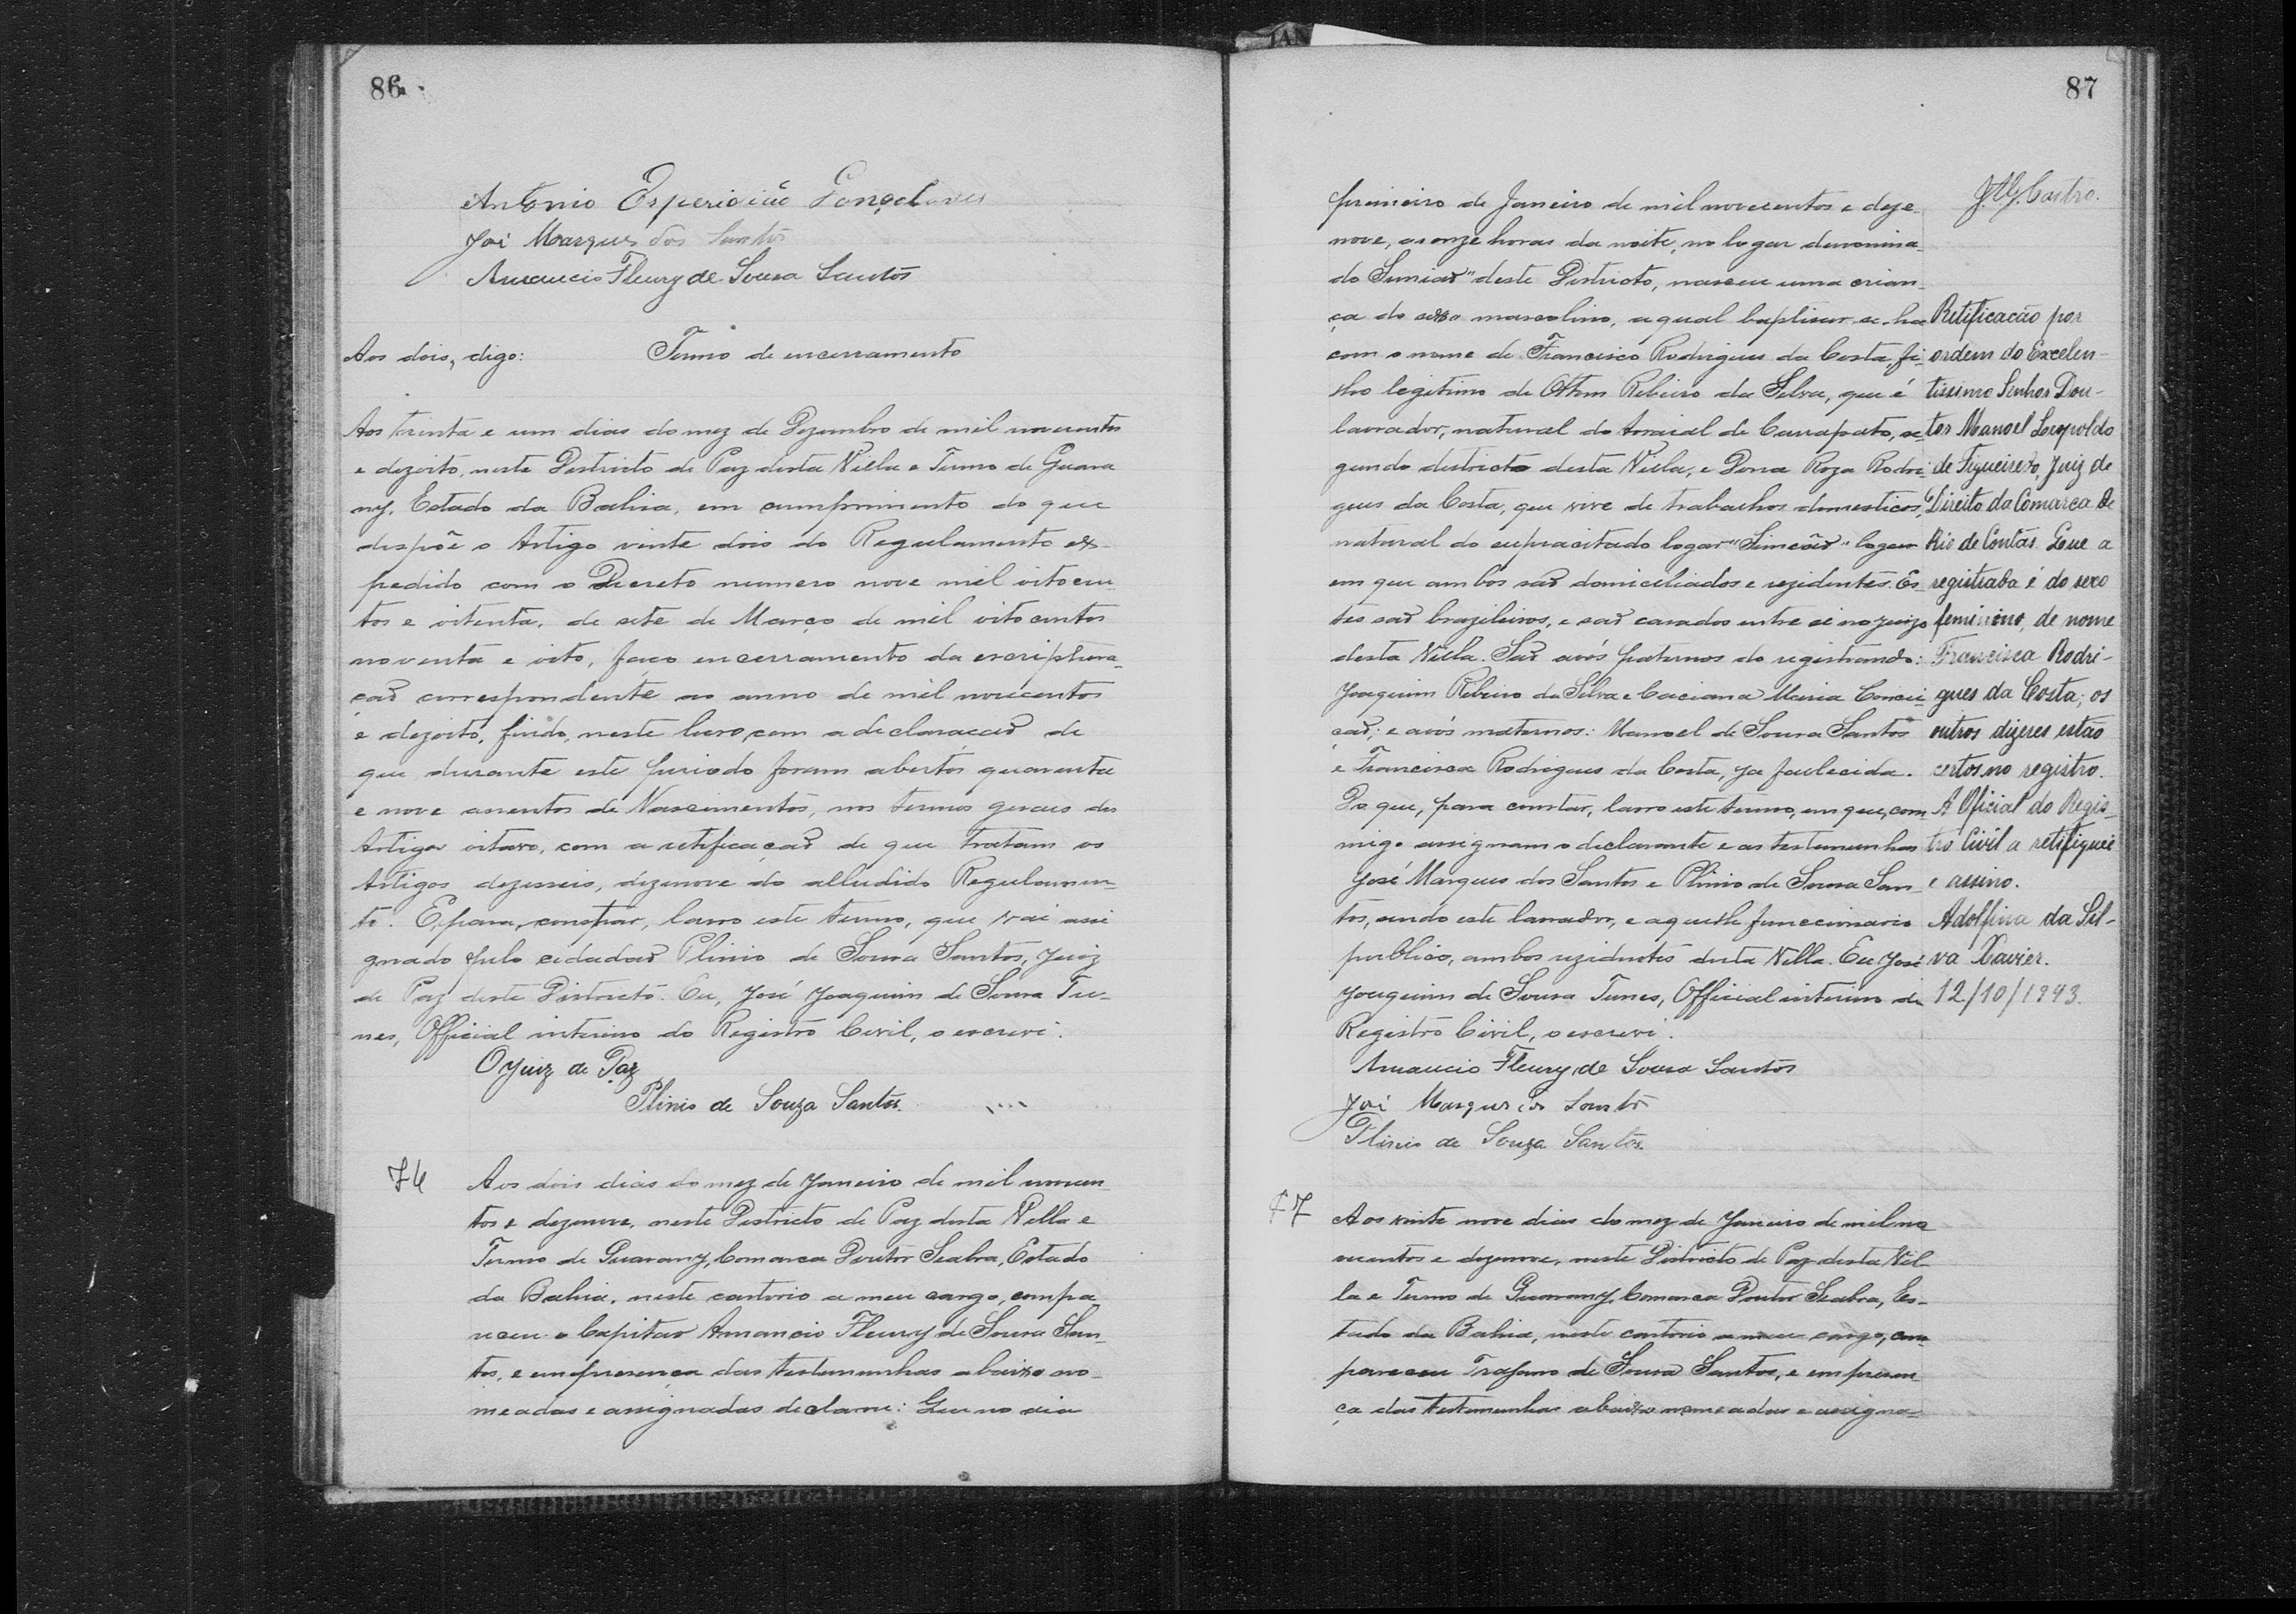 86
Antonio Esperidião Gonçalves
José Marques dos Santos
Amancio Fleury de Sousa Santos
Aos dois, digo: Termo de encerramento
Aos trinta e um dias do mez de Dezembro de mil novecentos
e dezoito, neste Districto de Paz desta Villa e Termo de Guara
ny, Estado da Bahia, em cumprimento do que
dispõe o Artigo vinte dois do Regulamento ex-
pedido com o Decreto numero nove mil oitocen-
tos e oitenta, de sete de Março de mil oitocentos
noventa e oito, faço encerramento da escriptura-
çaõ correspondente ao anno de mil novecentos
e dezoito, findo, neste livro, com a declaraçaõ de
que durante este periodo foram abertos quarenta
e nove assentos de Nascimentos, nos termos geraes do
Artigo oitavo, com a retificaçaõ de que tratam os
Artigos dezesseis, dezenove do alludido Regulamen-
to. E, para, constar, lavro este termo, que vai assi
gnado pelo cidadaõ Plinio de Sousa Santos, Juiz
de Paz deste Districto. Eu, José Joaquim de Sousa Tu-
nes, Official interino do Registro Civil, o escrevi.
O Juiz de Paz
Plinio de Souza Santos.
76
Aos dois dias do mez de Janeiro de mil novecen
tos e dezenove, neste Districto de Paz desta Villa e
Termo de Guarany, Comarca Doutor Seabra, Estado
da Bahia, neste cartorio a meu cargo, compa
receu o Capitaõ Amancio Fleury de Sousa San-
tos, e em presença das testemunhas abaixo no-
meadas e assignadas declarou: Que no dia
87
J. A. G. Castro.
primeiro de Janeiro de mil novecentos e deze-
nove, as onze horas da noite, no logar denomina-
do Simiaõ" deste Districto, nasceu uma crian-
ça do sexo masculino, a qual baptisar-se-ha
com o nome de Francisco Rodrigues da Costa, fi-
lho legitimo de Ribeiro da Silva, que é
lavrador, natural do Arraial de Carrapato, se-
gundo districto desta Villa, e Dona Roza Rodri-
gues da Costa, que vive de trabalhos domesticos,
natural do supracitado logar "Simeaõ" logar
em que ambos saõ domiciliados e rezidentes. Es-
tes saõ brazileiros, e saõ casados entre si no juizo
desta Villa. Saõ avós paternos do registrando:
Joaquim Ribeiro da Silva e Caciana Maria Concei-
çaõ; e avós maternos: Manoel de Sousa Santos
e Francisca Rodrigues da Costa, ja fallecida.
Do que, para constar, lavro este termo, em que, com-
migo assignam o declarante e as testemunhas
José Marques dos Santos e Plinio de Sousa San-
tos, sendo este lavrador, e aquelle funccionario
publico, ambos rezidentes desta Villa. Eu José
Joaquim de Sousa Tunes, Official interino do
Registro Civil, o escrevi.
Amancio Fleury de Sousa Santos
José Marques dos Santos
Plinio de Souza Santos.
Retificação por
ordem do Excelen-
tissimo Senhor Dou-
tor Manoel Leopoldo
de Figueiredo, Juiz de
Direito da Comarca de
Rio de Contas. Que a
registrada é do sexo
feminino, de nome
Francisca Rodri-
gues da Costa; os
outros dizeres estão
certos no registro.
A Oficial do Regis-
tro Civil a retifiquei
e assino.
Adolfina da Sil-
va Xavier.
12/10/1943.
77
Aos vinte nove dias do mez de Janeiro de mil no
vecentos e dezenove, neste Districto de Paz desta Vil-
la e Termo de Guarany, Comarca Doutor Seabra, Es-
tado da Bahia, neste cartorio a meu cargo, com-
pareceu Trajano de Sousa Santos, e em presen
ça das testemunhas abaixo nomeadas e assigna-